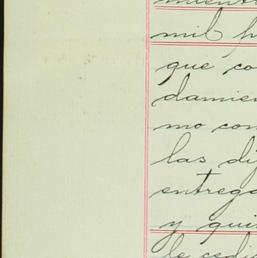 mil
que co
damien
mo con
las di
entrega
y qui
le cedi